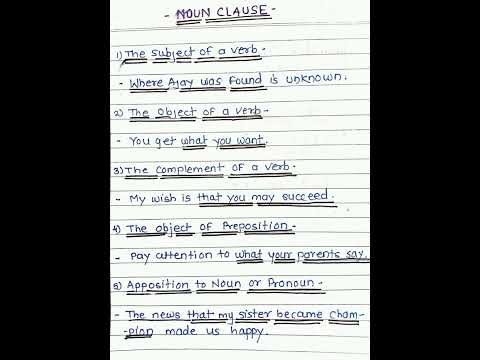 - NOUN CLAUSE -
1) The subject of a verb -
- Where Ajay was found is unknown.
2) The Object of a verb -
- You get what you want.
3) The complement of a verb -
- My wish is that you may succeed.
4) The object of Preposition -
- Pay attention to what your parents say.
5) Apposition to Noun or Pronoun -
- The news that my sister became cham-
-pion made us happy.